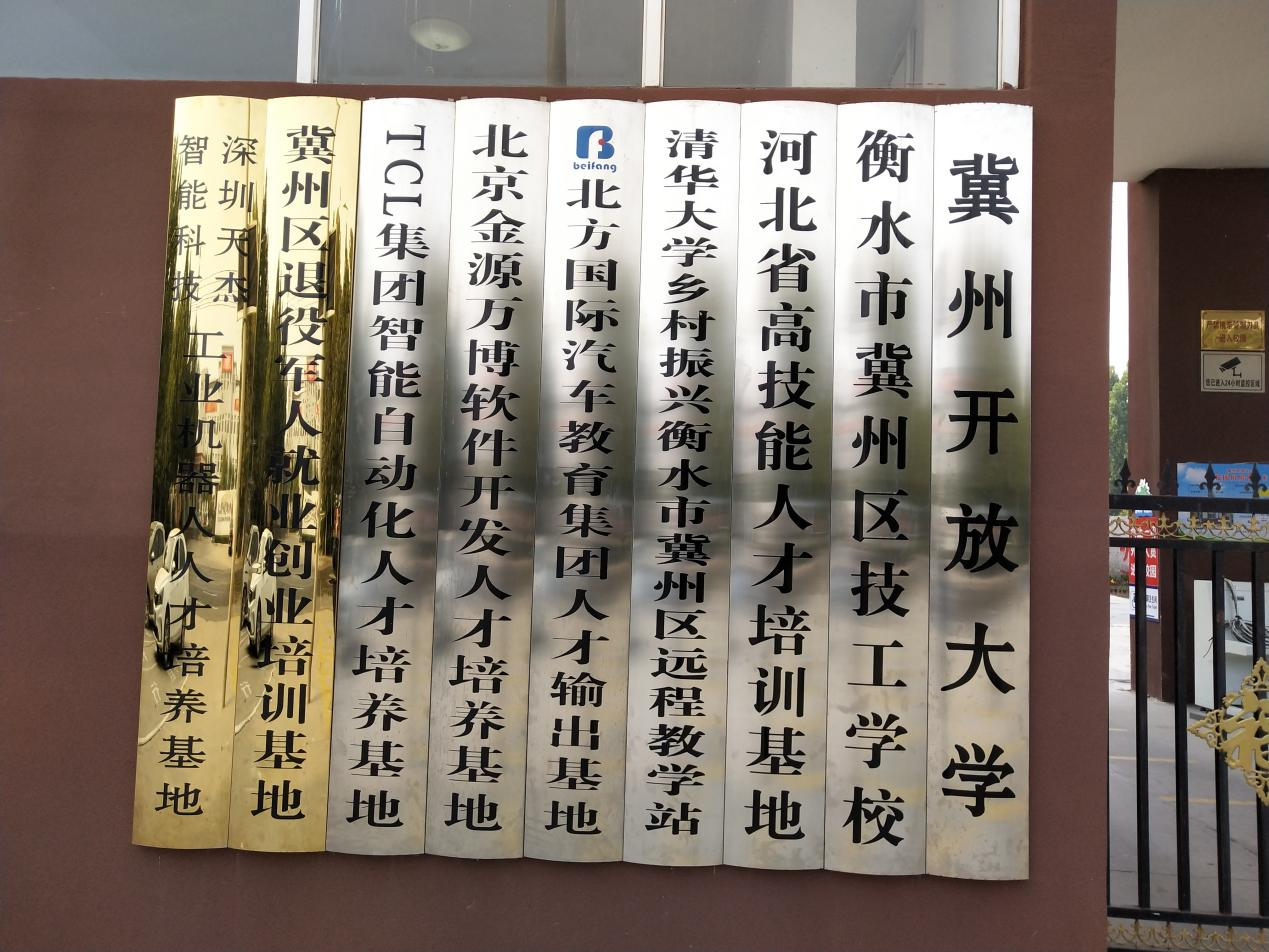 冀州开放大学
衡水市冀州区技工学校
河北省高技能人才培训基地
清华大学乡村振兴衡水市冀州区远程教学站
beifang
北方国际汽车教育集团人才输出基地
北京金源万博软件开发人才培养基地
TCL集团智能自动化人才培养基地
冀州区退役军人就业创业培训基地
深圳天杰
智能科技
工业机器人人才培养基地
进入校园
您已进入24小时监控区域